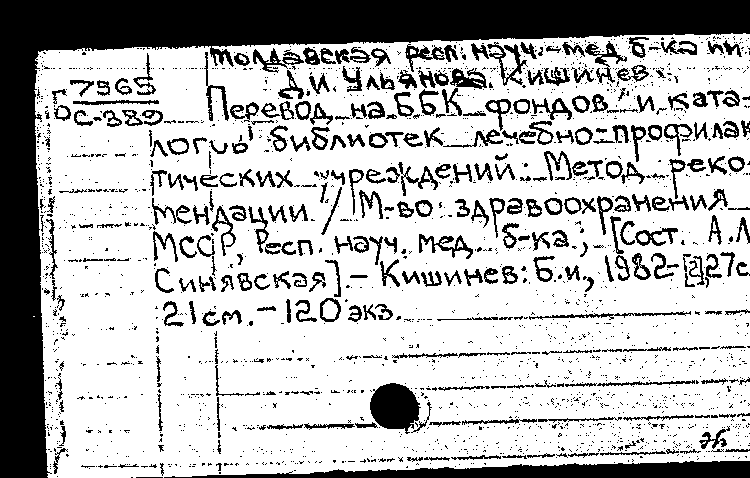 Молдавская респ. науч.-мед. б-ка им.
Д.И. Ульянова. Кишинев.
7965
С-389
Перевод на ББК фондов и ката-
логов библиотек лечебно-профилак
тических учреждений: Метод. реко-
мендации / М-во здравоохранения
МССР, Респ. науч. мед. б-ка.; [Сост. А.Л.
Синявская]. - Кишинев: Б.и., 1982. - [2], 27с
21см. - 120 экз.